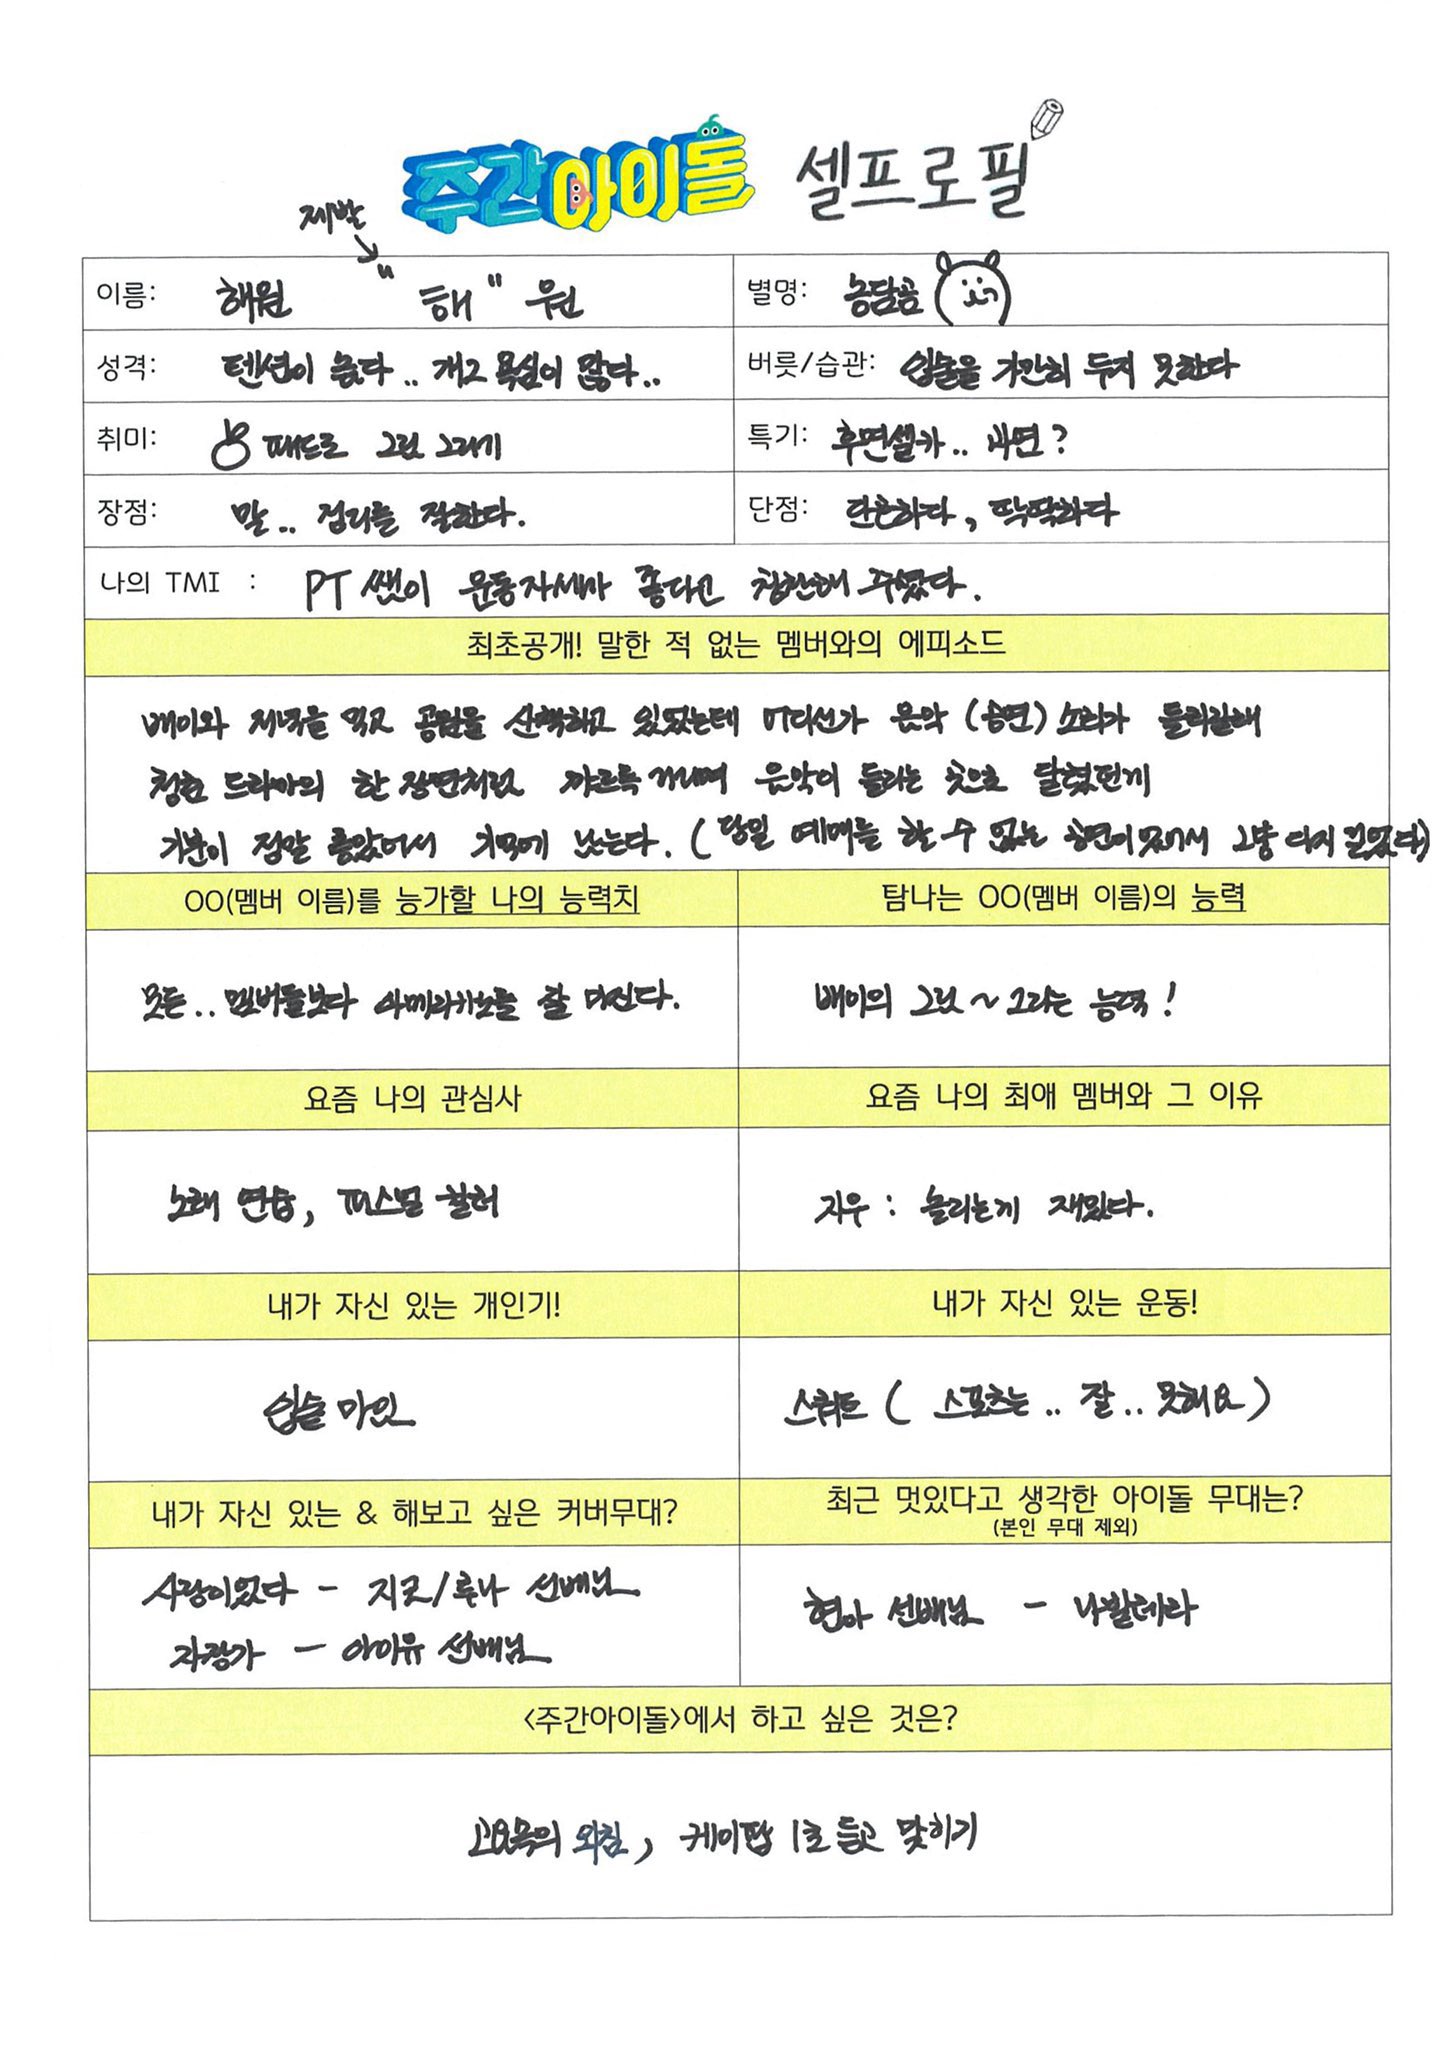 주간아이돌 셀프로필
제발
이름: 해원 "해"원
별명: 농담곰
성격: 텐션이 높다.. 개그 욕심이 많다..
버릇/습관: 입술을 가만히 두지 못한다
취미: 패드로 그림 그리기
특기: 후면셀카.. 라면?
장점: 말.. 정리를 잘한다.
단점: 단호하다, 딱딱하다
나의 TMI : PT쌤이 운동자세가 좋다고 칭찬해 주셨다.
최초공개! 말한 적 없는 멤버와의 에피소드
배이와 저녁을 먹고 공원을 산책하고 있었는데 어디선가 음악 (공연) 소리가 들리길래
청춘 드라마의 한 장면처럼 꺄르륵 거리며 음악이 들리는 곳으로 달렸던게
기분이 정말 좋았어서 기억에 남는다. (당일 예매를 할 수 없는 공연이었어서 그냥 다시 걸었다)
OO(멤버 이름)를 능가할 나의 능력치
탐나는 OO(멤버 이름)의 능력
모든.. 멤버들보다 아메리카노를 잘 마신다.
배이의 그림~ 그리는 능력!
요즘 나의 관심사
요즘 나의 최애 멤버와 그 이유
노래 연습, 퍼스널 컬러
지우 : 놀리는게 재밌다.
내가 자신 있는 개인기!
내가 자신 있는 운동!
입술 마임
스쿼트 ( 스포츠는.. 잘.. 못해요)
내가 자신 있는 & 해보고 싶은 커버무대?
최근 멋있다고 생각한 아이돌 무대는?
(본인 무대 제외)
사랑이었다 - 지코/루나 선배님
자장가 - 아이유 선배님
현아 선배님 - 나빌레라
<주간아이돌>에서 하고 싶은 것은?
고요속의 외침, 케이팝 1초 듣고 맞히기